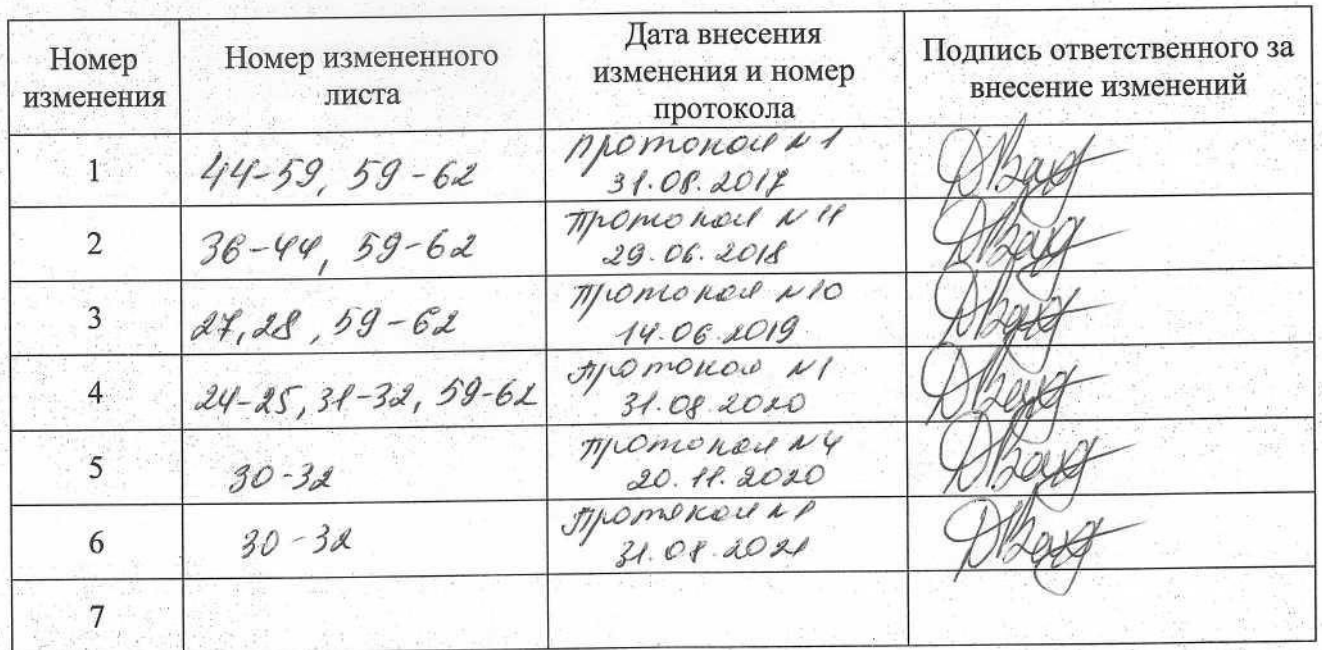 Номер изменения
Номер измененного листа
Дата внесения изменения и номер протокола
Подпись ответственного за внесение изменений
1
44-59, 59-62
Протокол №1
31.08.2017
2
36-44, 59-62
Протокол №11
29.06.2018
3
27,28, 59-62
Протокол №10
14.06.2019
4
24-25, 31-32, 59-62
Протокол №1
31.08.2020
5
30-32
Протокол №4
20.11.2020
6
30-32
Протокол №1
31.08.2021
7